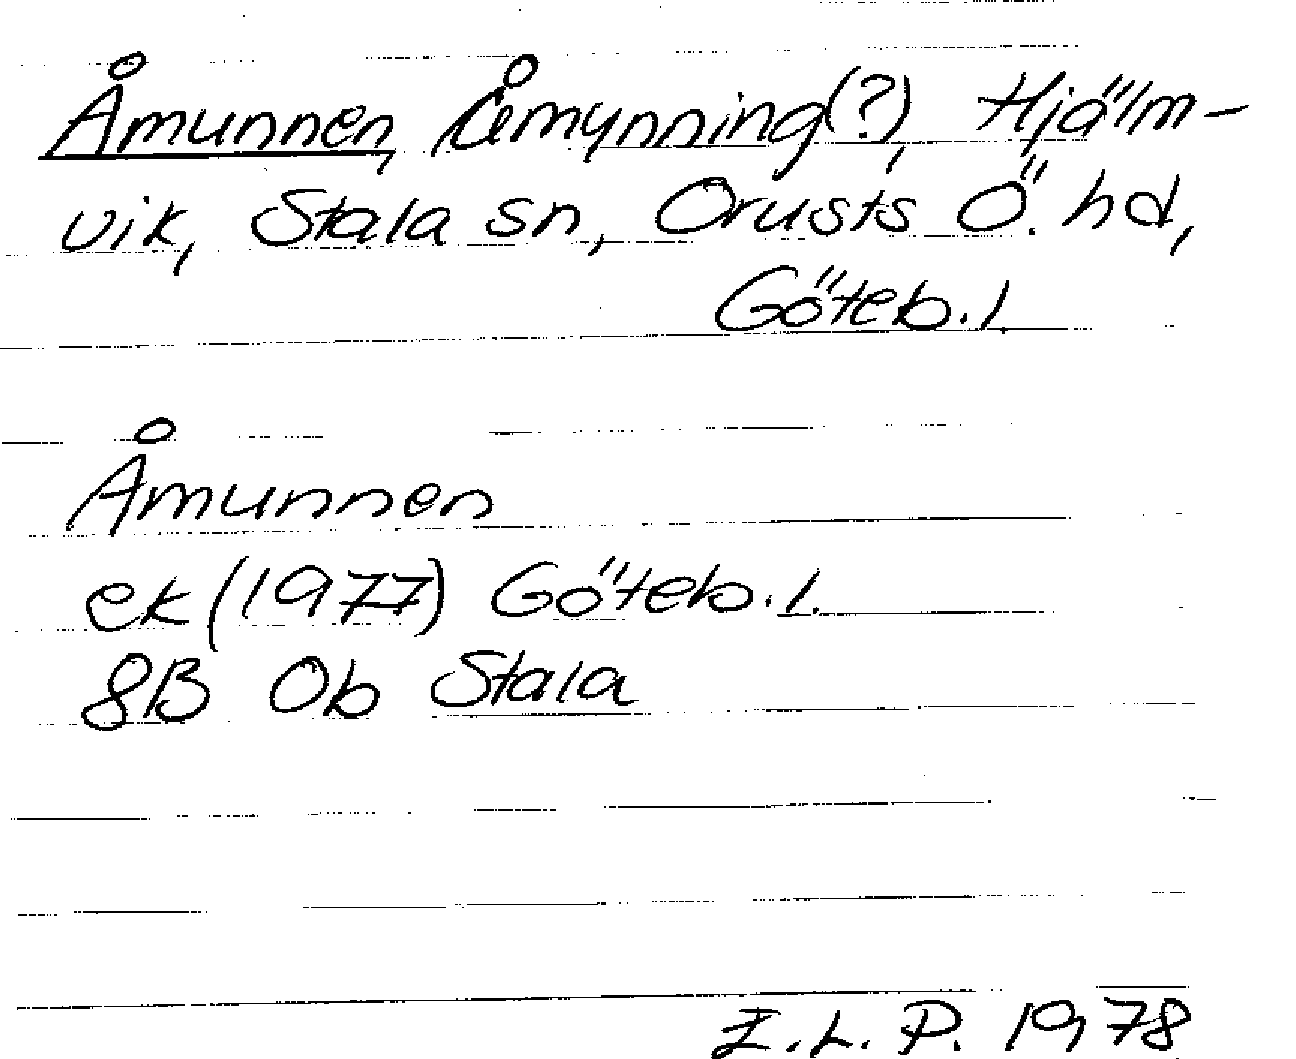 Åmunnen, Åmynning(?), Hjälm-
vik, Stala sn, Orusts Ö. hd,
Göteb. l.
Åmunnen
ek (1977) Göteb. l.
8B 0b Stala
E. L. P. 1978